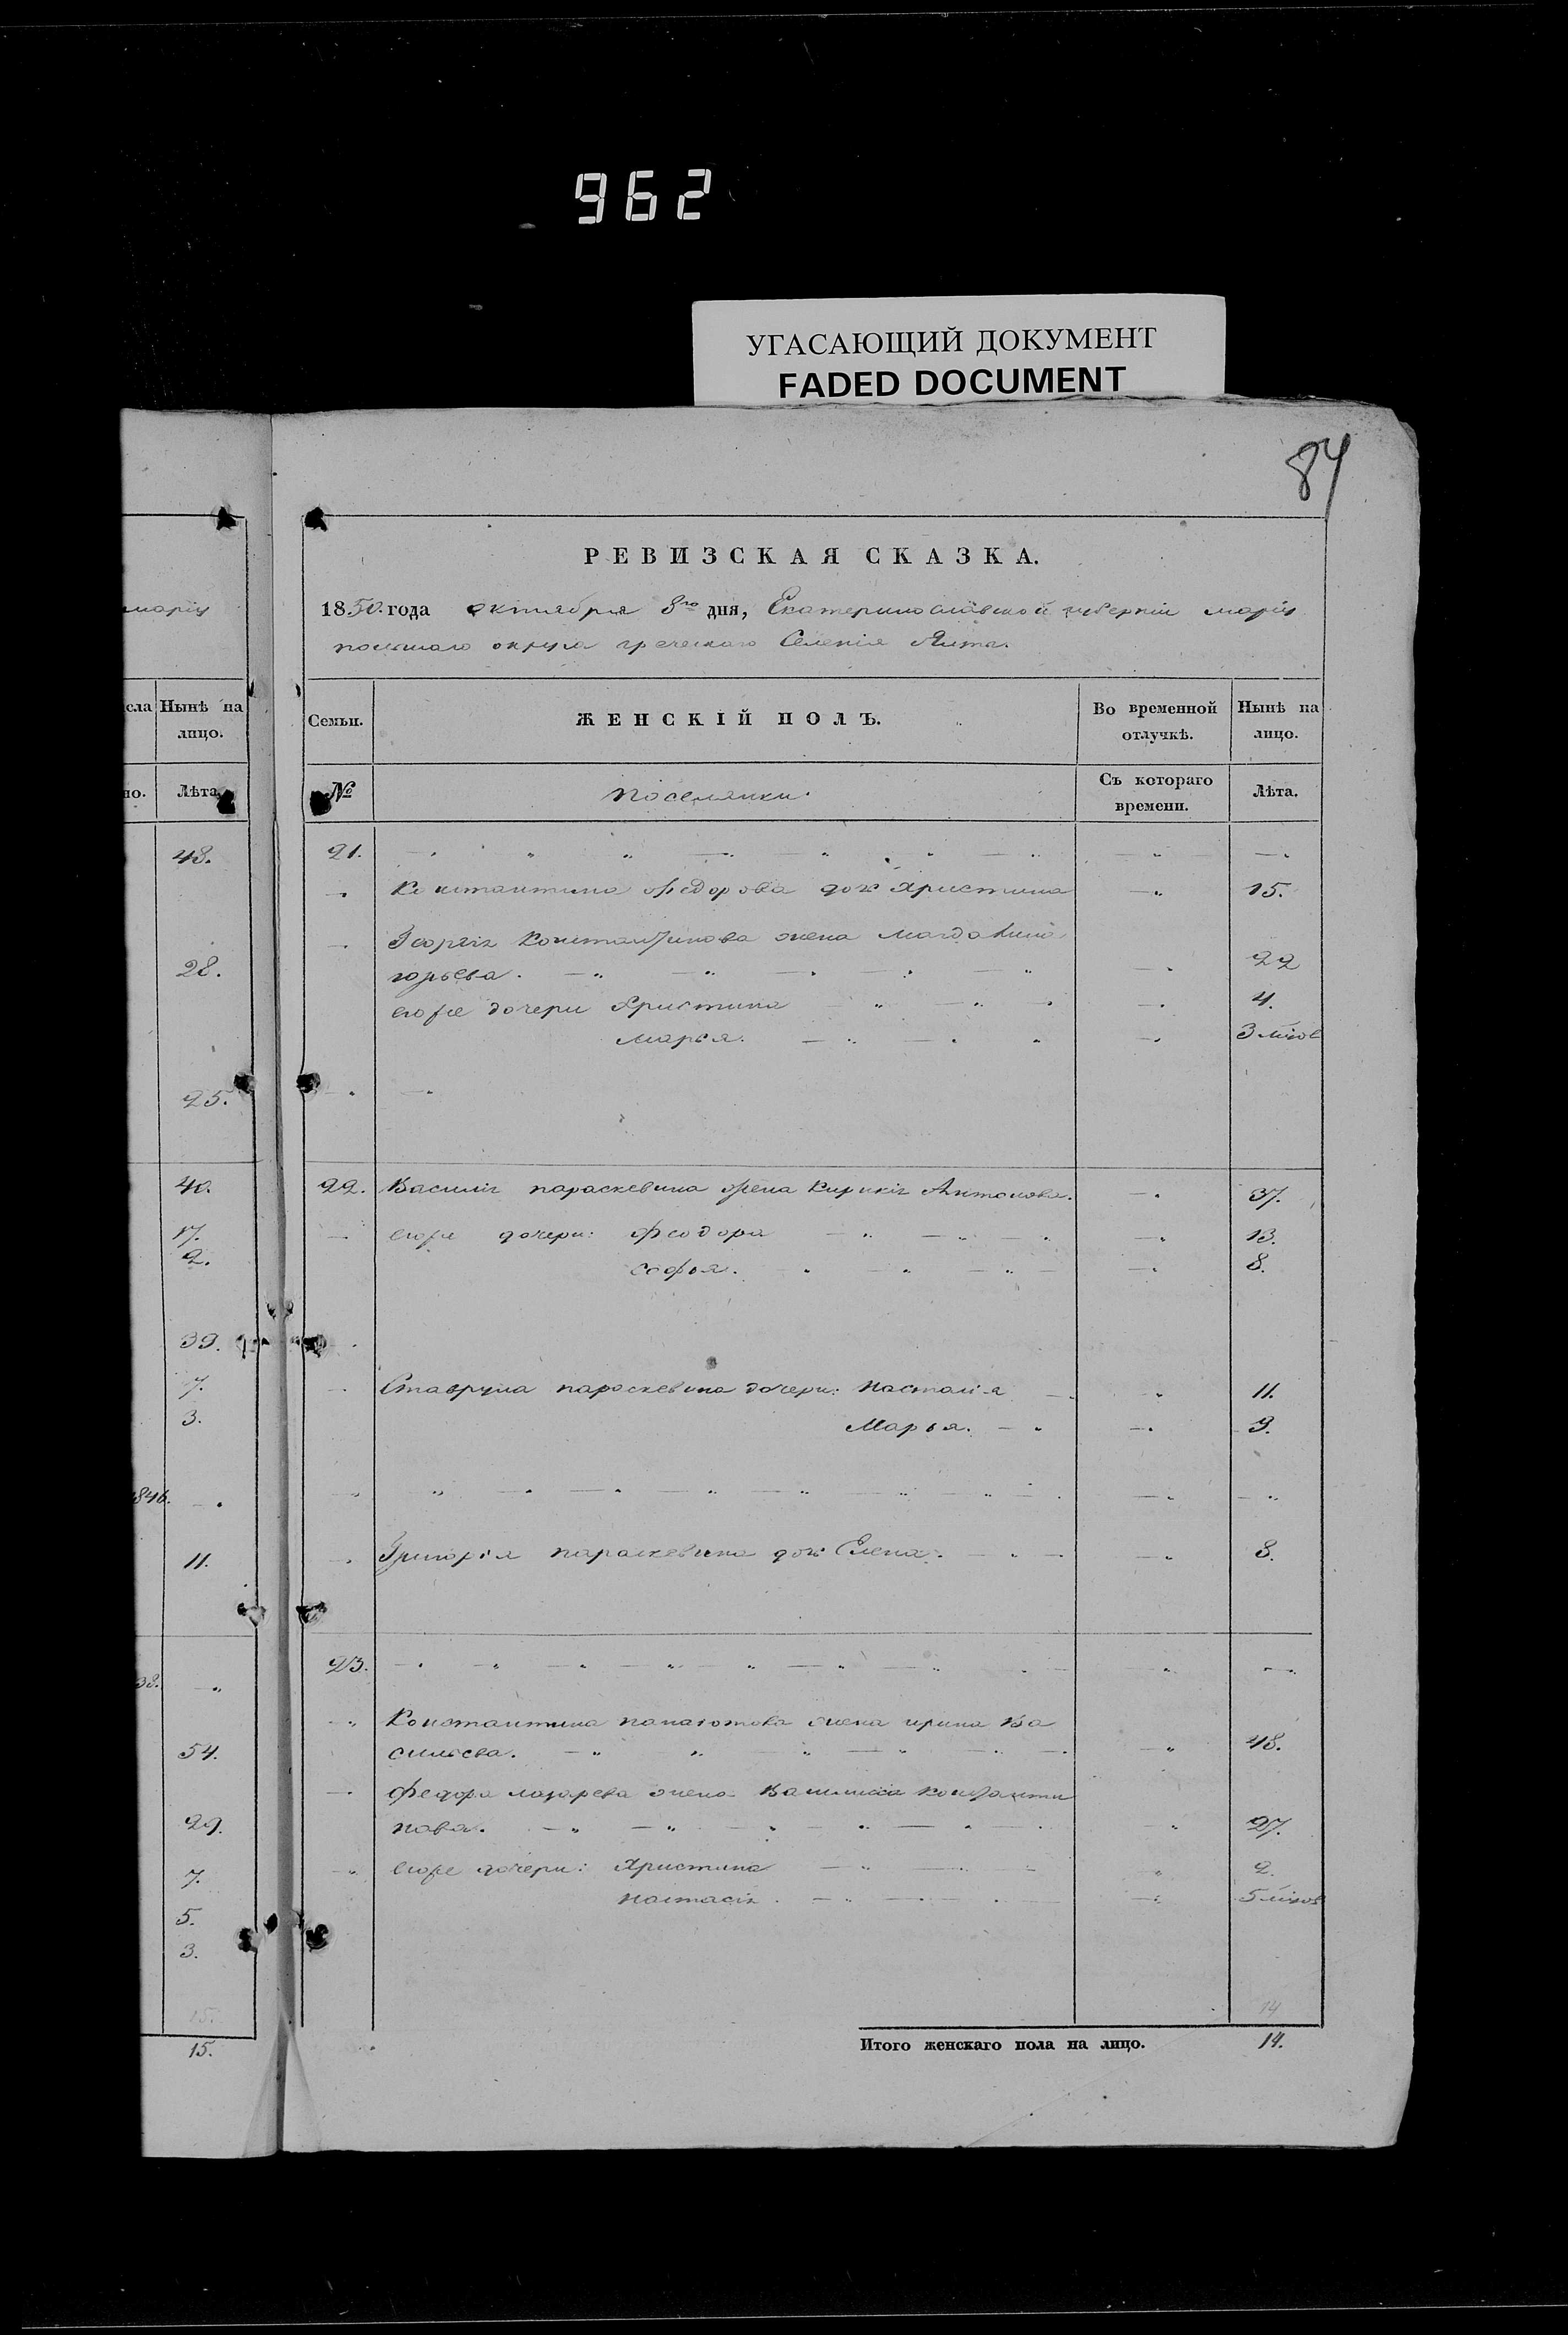 962
УГАСАЮЩИЙ ДОКУМЕНТ
FADED DOCUMENT
84
марiу
сла Нынѣ на
лицо.
но. Лѣта.
48.
28.
25.
40.
17.
2.
39.
7.
3.
1846.
11.
38.
54.
29.
7.
5.
3.
15.
15.
РЕВИЗСКАЯ СКАЗКА.
1850. года октября 8го дня, Екатеринославской губернiи марiу
польскаго округа греческаго Селенiя Ялта.
Семьи. ЖЕНСКІЙ ПОЛЪ. Во временной отлучкѣ. Нынѣ на лицо.
№ поселянки. Съ котораго времени. Лѣта.
21.
Константина Федорова доч Христина 15.
Георгiя Константинова жена
горьева. 22
его же дочери Христина 4.
Марья. 3 мцов
22. Василiя параскевина жена Кирикiя Антонова. 37.
его же дочери: Феодора 13.
Софья. 8.
параскевина дочери: 11.
Марья. 9.
Григорiя параскевина доч Елена. 8.
23.
Константина панаiотова жена ирина Ва
сильева. 48.
Федора лазарева жена Василиса Константи
нова. 27.
его же дочери: Христина 2.
настасiя. 5 мцов
14
Итого женскаго пола на лицо. 14.